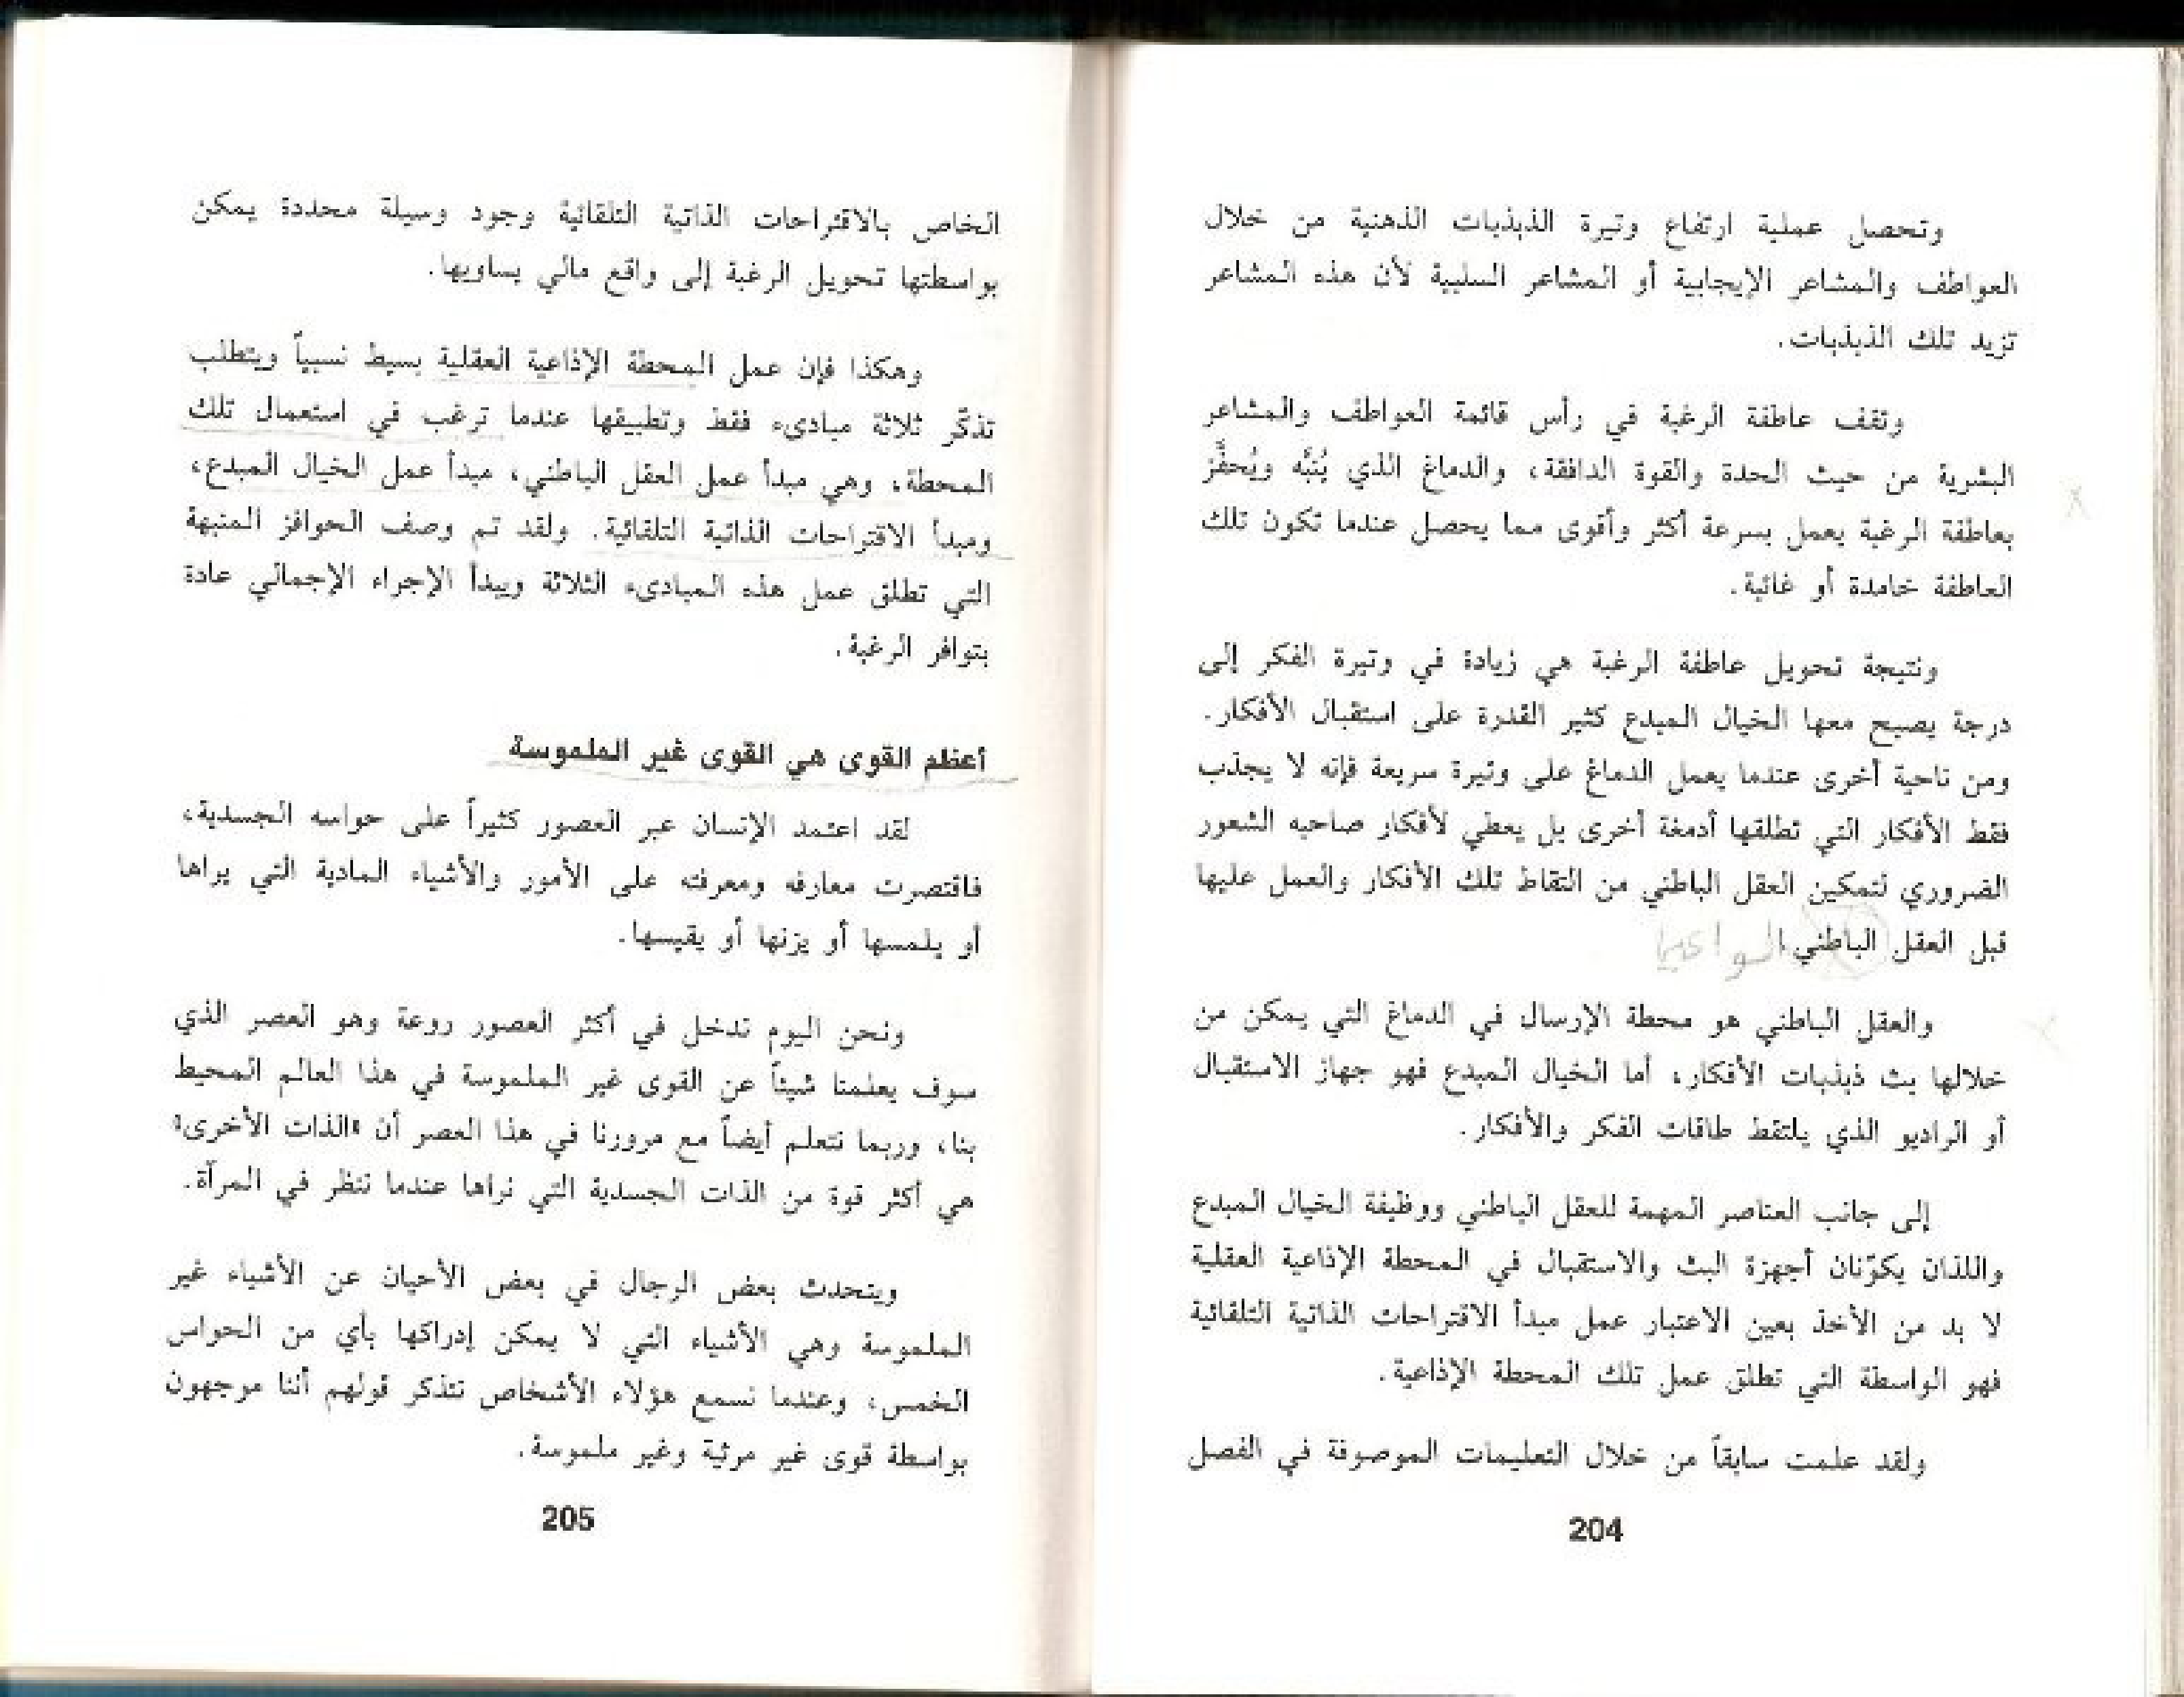 وتحصل عملية ارتفاع وتيرة الذبذبات الذهنية من خلال
العواطف والمشاعر الإيجابية أو المشاعر السلبية لأن هذه المشاعر
تزيد تلك الذبذبات.
وتقف عاطفة الرغبة في رأس قائمة العواطف والمشاعر
البشرية من حيث الحدة والقوة الدافقة، والدماغ الذي يُنَبَّه ويُحفَّز
بعاطفة الرغبة يعمل بسرعة أكثر وأقوى مما يحصل عندما تكون تلك
العاطفة خامدة أو غائبة.
ونتيجة تحويل عاطفة الرغبة هي زيادة في وتيرة الفكر إلى
درجة يصبح معها الخيال المبدع كثير القدرة على استقبال الأفكار.
ومن ناحية أخرى عندما يعمل الدماغ على وتيرة سريعة فإنه لا يجذب
فقط الأفكار التي تطلقها أدمغة أخرى بل يعطي لأفكار صاحبه الشعور
الضروري لتمكين العقل الباطني من التقاط تلك الأفكار والعمل عليها
قبل العقل الباطني.
والعقل الباطني هو محطة الإرسال في الدماغ التي يمكن من
خلالها بث ذبذبات الأفكار، أما الخيال المبدع فهو جهاز الاستقبال
أو الراديو الذي يلتقط طاقات الفكر والأفكار.
إلى جانب العناصر المهمة للعقل الباطني ووظيفة الخيال المبدع
واللذان يكوّنان أجهزة البث والاستقبال في المحطة الإذاعية العقلية
لا بد من الأخذ بعين الاعتبار عمل مبدأ الاقتراحات الذاتية التلقائية
فهو الواسطة التي تطلق عمل تلك المحطة الإذاعية.
ولقد علمت سابقاً من خلال التعليمات الموصوفة في الفصل
204
الخاص بالاقتراحات الذاتية التلقائية وجود وسيلة محددة يمكن
بواسطتها تحويل الرغبة إلى واقع مالي يساويها.
وهكذا فإن عمل المحطة الإذاعية العقلية بسيط نسبياً ويتطلب
تذكّر ثلاثة مبادىء فقط وتطبيقها عندما ترغب في استعمال تلك
المحطة، وهي مبدأ عمل العقل الباطني، مبدأ عمل الخيال المبدع،
ومبدأ الاقتراحات الذاتية التلقائية. ولقد تم وصف الحوافز المنبهة
التي تطلق عمل هذه المبادىء الثلاثة ويبدأ الإجراء الإجمالي عادة
بتوافر الرغبة.
أعظم القوى هي القوى غير الملموسة
لقد اعتمد الإنسان عبر العصور كثيراً على حواسه الجسدية،
فاقتصرت معارفه ومعرفته على الأمور والأشياء المادية التي يراها
أو يلمسها أو يزنها أو يقيسها.
ونحن اليوم ندخل في أكثر العصور روعة وهو العصر الذي
سوف يعلمنا شيئاً عن القوى غير الملموسة في هذا العالم المحيط
بنا، وربما نتعلم أيضاً مع مرورنا في هذا العصر أن «الذات الأخرى»
هي أكثر قوة من الذات الجسدية التي نراها عندما ننظر في المرآة.
ويتحدث بعض الرجال في بعض الأحيان عن الأشياء غير
الملموسة وهي الأشياء التي لا يمكن إدراكها بأي من الحواس
الخمس، وعندما نسمع هؤلاء الأشخاص نتذكر قولهم أننا موجهون
بواسطة قوى غير مرئية وغير ملموسة.
205